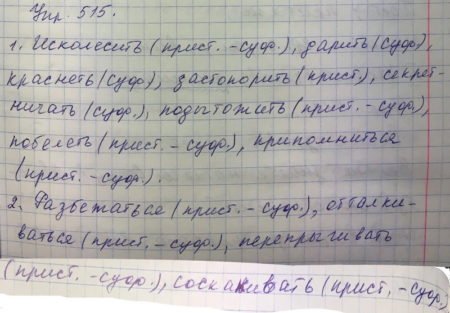 Упр. 515.
1. Исколесить (прист. -суф.), дарить (суф.),
краснеть (суф.), застопорить (прист.), секрет-
ничать (суф.), подытожить (прист. - суф.),
побелеть (прист. - суф.), припомниться
(прист. - суф.).
2. Разбежаться (прист. - суф.), отталки-
ваться (прист. - суф.), перепрыгивать
(прист. -суф.), соскакивать (прист. -суф.)